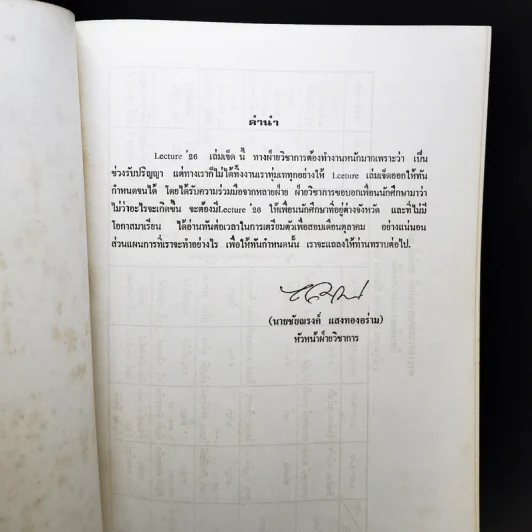 คำนำ
Lecture '26 เล่มเจ็ดนี้ ทางฝ่ายวิชาการต้องทำงานหนักมากเพราะว่า เป็น
ช่วงรับปริญญา แต่ทางเราก็ไม่ได้ทิ้งงานเราทุ่มเททุกอย่างให้ Lecture เล่มเจ็ดออกให้ทัน
กำหนดจนได้ โดยได้รับความร่วมมือจากหลายฝ่าย ฝ่ายวิชาการขอบอกเพื่อนนักศึกษามาว่า
ไม่ว่าอะไรจะเกิดขึ้น จะต้องมีLecture '26 ให้เพื่อนนักศึกษาที่อยู่ต่างจังหวัด และที่ไม่มี
โอกาสมาเรียน ได้อ่านทันต่อเวลาในการเตรียมตัวเพื่อสอบเดือนตุลาคม อย่างแน่นอน
ส่วนแผนการที่เราจะทำอย่างไร เพื่อให้ทันกำหนดนั้น เราจะแถลงให้ท่านทราบต่อไป.
(นายชัยณรงค์ แสงทองอร่าม)
หัวหน้าฝ่ายวิชาการ